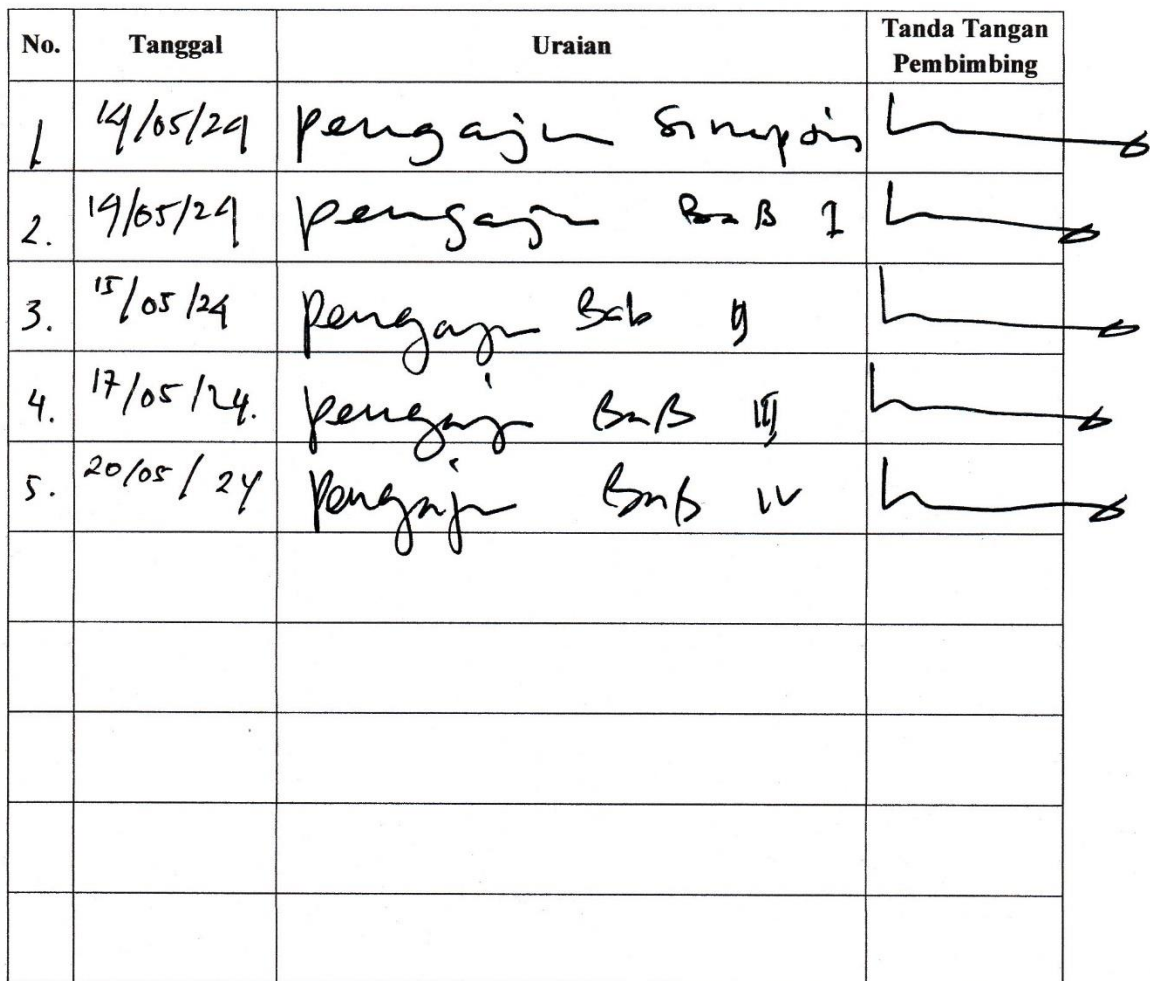 No. Tanggal Uraian Tanda Tangan Pembimbing
1 14/05/24 pengajun Sinopsis
2. 14/05/24 pengajun BaB I
3. 15/05/24 pengajun Bab II
4. 17/05/24. pengajun BaB III
5. 20/05/24 pengajun BaB IV